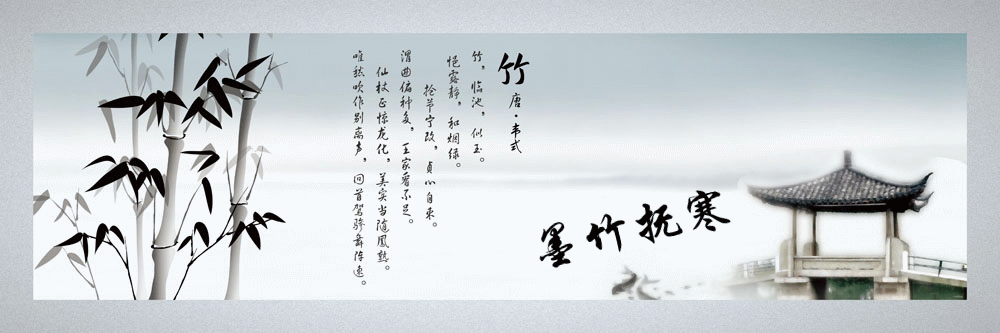 竹
唐·韦式
竹,临池,似玉。
悒露静,和烟绿。
抢节宁改,贞心自束。
渭曲偏种多,王家看不足。
仙杖正惊龙化,美实当随凤熟。
唯愁吹作别离声,回首驾骖舞阵速。
墨竹抚寒